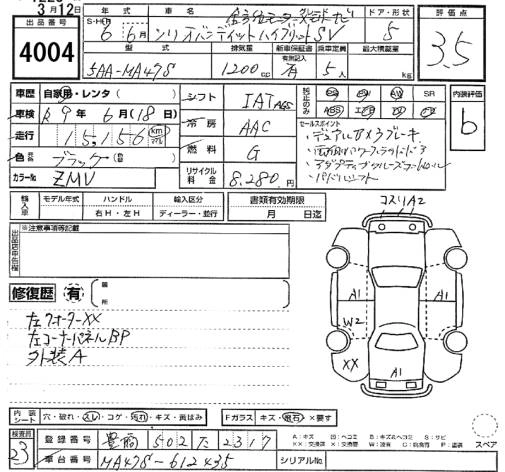 3月12日
出品番号
4004
年式 車名 ドア・形状 評価点
S・H・R
6年 6月 ソリオバンディットハイブリットSV 5 3.5
型式 排気量 新車保証書 乗車定員 最大積載量
有無記入
5AA-MA47S 1200cc 有 5人 kg
車歴 自家用・レンタ( ) シフト IAT AGS SR 内装評価
車検 R9年6月(18日) 冷房 AAC b
走行 15,156km 燃料 G
色 ブラック リサイクル料金 8,280円
カラーNo ZMV
セールスポイント
・デュアル
・アダプティブクルーズコントロール
・パドルシフト
輸入車 モデル年式 ハンドル 輸入区分 書類有効期限
右H・左H ディーラー・並行 月 日迄
※注意事項等記載
出品店申告欄
コスリA2
修復歴 有 箇所
A1 A1
W2
XX A1
左クォーターXX
左コーナーパネルBP
外装A
内装シート 穴・破れ・スレ・コゲ・汚れ・キズ・黄ばみ Fガラス キズ・飛石・×要す
検査員 23
登録番号 豊橋 502 た 2317
車台番号 MA47S-612435 シリアルNo
A:キズ U:ヘコミ B:キズ&ヘコミ S:サビ
XX:交換済 X:交換要 W:波 C:腐食 P:塗装
スペア